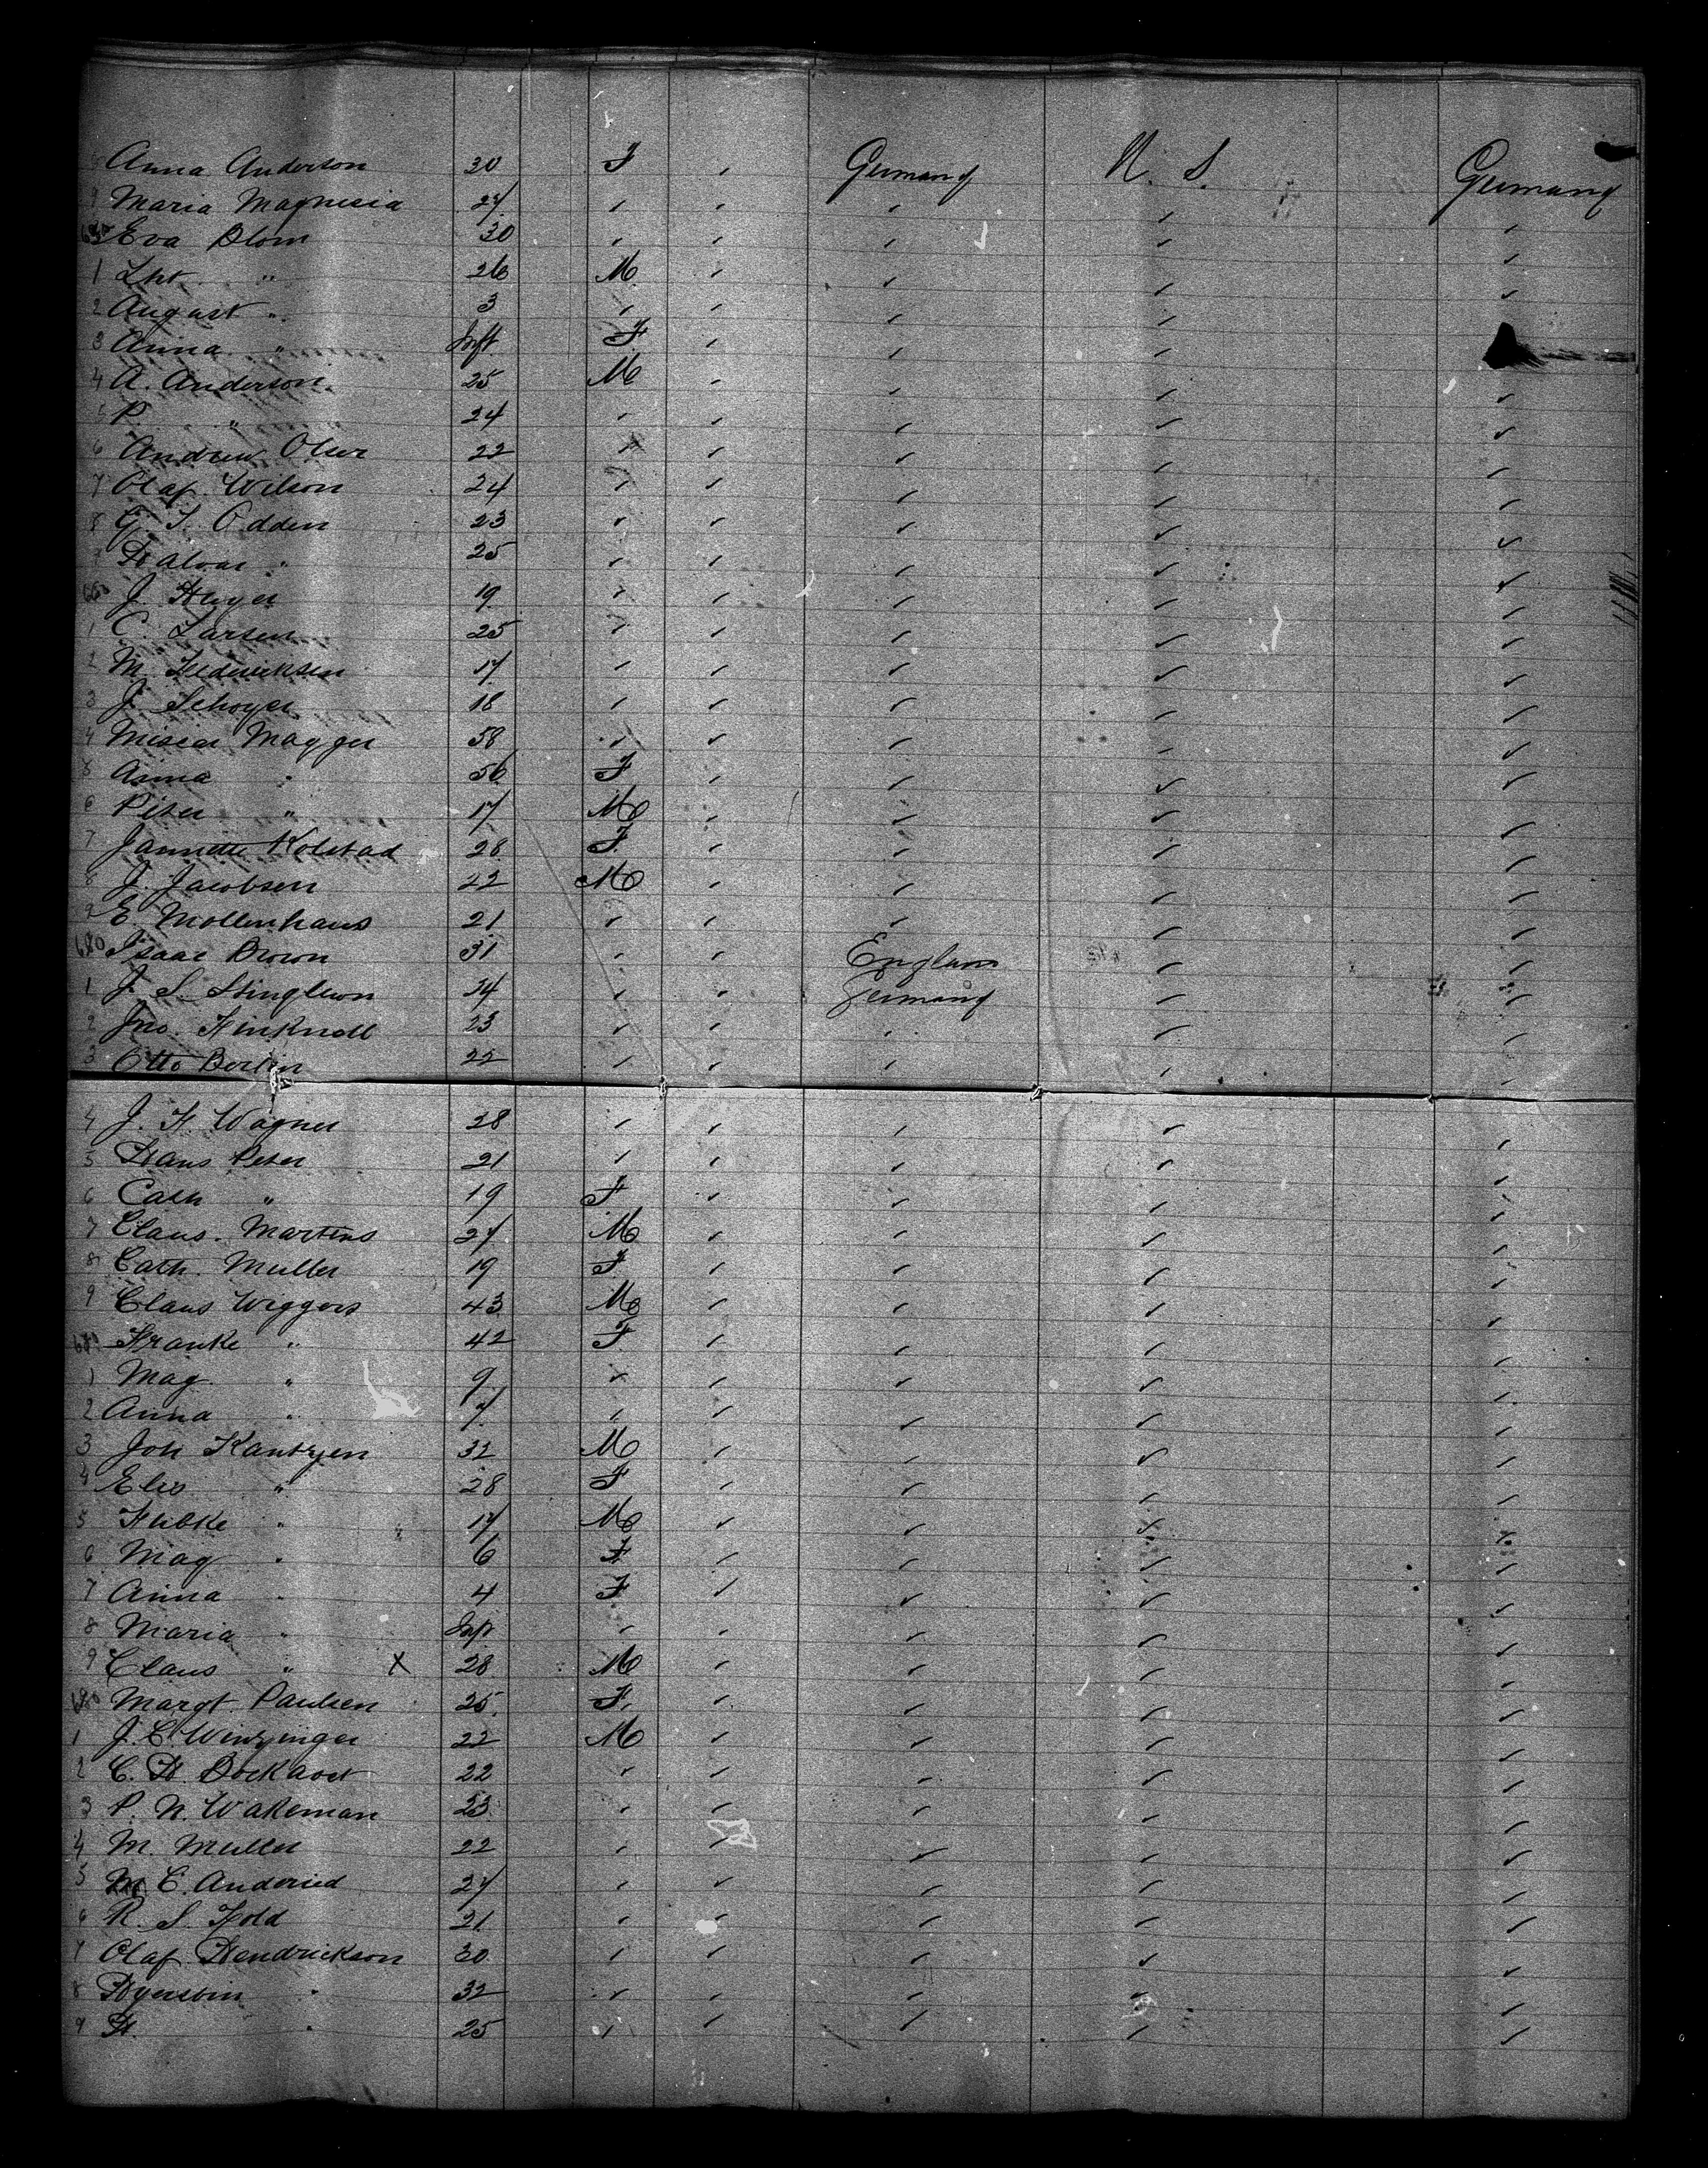 8 Anna Anderson 30 F ✓ Germany U. S. Germany
9 Maria Magnesia 27 ✓ ✓ ✓ ✓ ✓
Eva Blom 30 ✓ ✓ ✓ ✓ ✓
1 " 26 M ✓ ✓ ✓ ✓
2 August " 3 ✓ ✓ ✓ ✓
3 Anna " Inft F ✓ ✓ ✓
4 A. Anderson 25 M ✓ ✓ ✓ ✓
5 P. " 24 ✓ ✓ ✓ ✓ ✓
6 Andrew Olser 22 ✓ ✓ ✓ ✓ ✓
7 Olaf Wilson 24 ✓ ✓ ✓ ✓ ✓
8 G. S. Odden 23 ✓ ✓ ✓ ✓ ✓
9 Halvar " 25 ✓ ✓ ✓ ✓ ✓
J. Hoyer 19 ✓ ✓ ✓ ✓ ✓
1 C. Larsen 25 ✓ ✓ ✓ ✓ ✓
2 M. Fedricksen 17 ✓ ✓ ✓ ✓ ✓
3 J. Schoyer 18 ✓ ✓ ✓ ✓ ✓
4 Magger 58 ✓ ✓ ✓ ✓ ✓
5 Anna " 56 F ✓ ✓ ✓ ✓
6 Peter " 17 M ✓ ✓ ✓ ✓
7 Jannette Kolstad 28 F ✓ ✓ ✓ ✓
8 J. Jacobsen 22 M ✓ ✓ ✓ ✓
9 E. Mollenhaus 21 ✓ ✓ ✓ ✓ ✓
Isaac Brown 31 ✓ ✓ England ✓ ✓
1 J. S. 24 ✓ ✓ Germany ✓ ✓
2 Jno. Finknoll 23 ✓ ✓ ✓ ✓ ✓
3 Otto Berlin 22 ✓ ✓ ✓ ✓ ✓
4 J. H. Wagner 28 ✓ ✓ ✓ ✓ ✓
5 Hans Peter 21 ✓ ✓ ✓ ✓ ✓
6 Cath " 19 F ✓ ✓ ✓ ✓
7 Claus. Martens 27 M ✓ ✓ ✓ ✓
8 Cath. Muller 19 F ✓ ✓ ✓ ✓
9 Claus Wiggers 43 M ✓ ✓ ✓ ✓
Franke " 42 F ✓ ✓ ✓ ✓
1 Mag. " 9 ✓ ✓ ✓ ✓ ✓
2 Anna " 7 ✓ ✓ ✓ ✓ ✓
3 Joh Kantzjen 32 M ✓ ✓ ✓ ✓
4 Elis " 28 F ✓ ✓ ✓ ✓
5 " 17 M ✓ ✓ ✓ ✓
6 Mag " 6 F ✓ ✓ ✓ ✓
7 Anna " 4 F ✓ ✓ ✓ ✓
8 Maria " Inft ✓ ✓ ✓ ✓ ✓
9 Claus " X 28 M ✓ ✓ ✓ ✓
Margt. Paulsen 25 F ✓ ✓ ✓ ✓
1 J. C. Winzinger 22 M ✓ ✓ ✓ ✓
2 C. H. 22 ✓ ✓ ✓ ✓ ✓
3 P. N. Wakeman 23 ✓ ✓ ✓ ✓ ✓
4 M. Muller 22 ✓ ✓ ✓ ✓ ✓
5 M. C. Anderied 27 ✓ ✓ ✓ ✓ ✓
6 R. S. Hold 21 ✓ ✓ ✓ ✓ ✓
7 Olaf Hendrickson 30 ✓ ✓ ✓ ✓ ✓
8 " 32 ✓ ✓ ✓ ✓ ✓
9 H. " 25 ✓ ✓ ✓ ✓ ✓